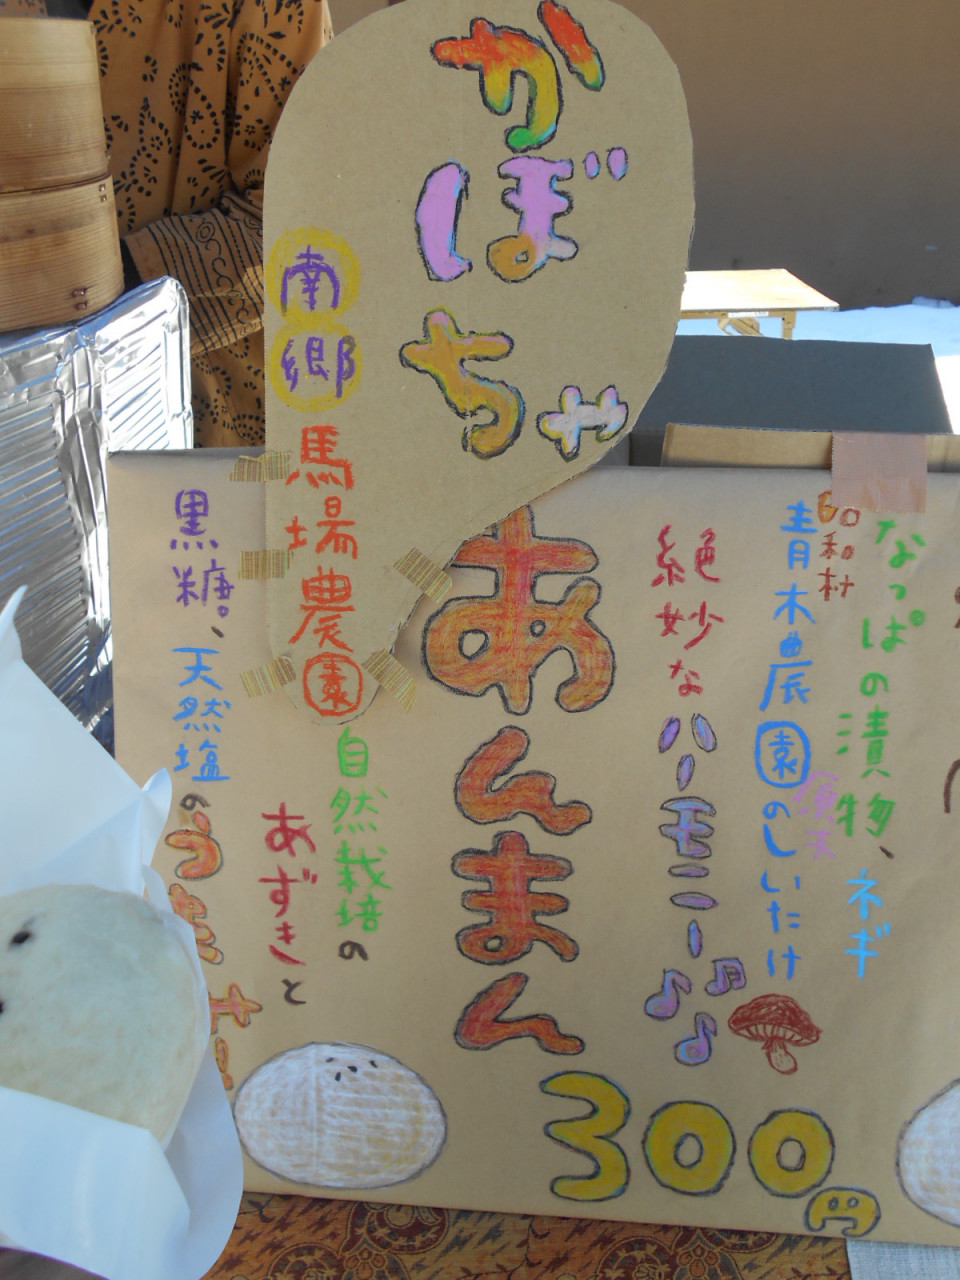 なっぱの漬物、ネギ
昭和村
青木農園のしいたけ
絶妙なハーモニー
かぼちゃ
あんまん
300円
南郷
馬場農園
自然栽培の
あずきと
黒糖、天然塩のうまさ!